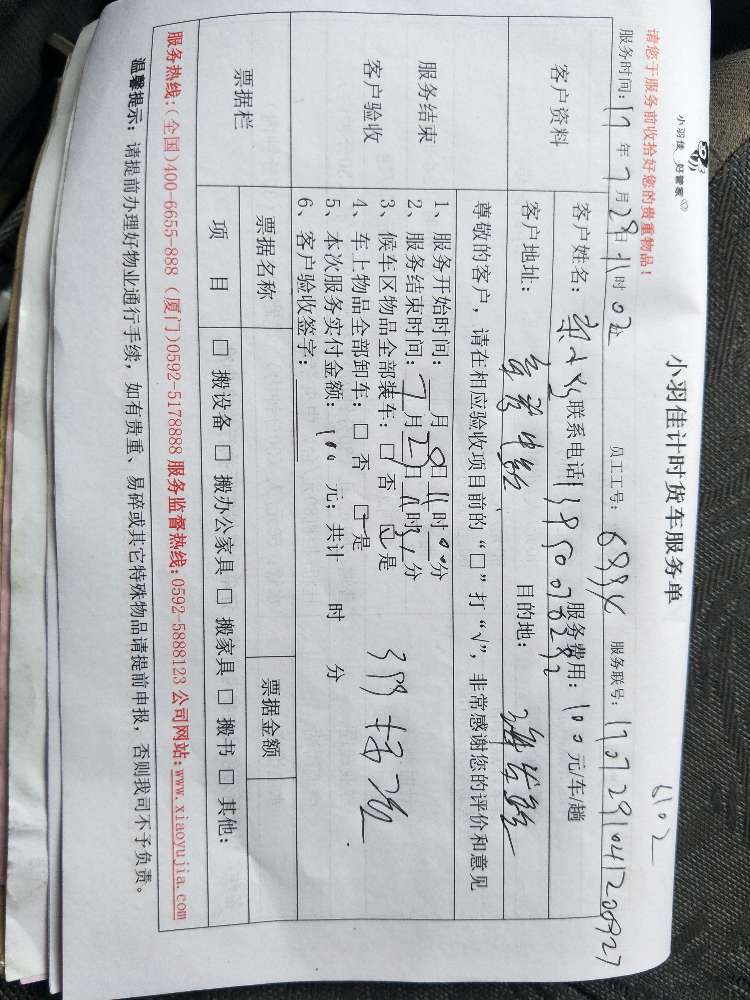 小羽佳 好管家
小羽佳计时货车服务单
6102
请您于服务前收拾好您的贵重物品！
服务时间：17年7月29日11时02 员工工号： 服务联号：
客户资料
客户姓名： 联系电话 服务费用：100元/车/趟
客户地址： 目的地：
尊敬的客户，请在相应验收项目前的“□”打“√”，非常感谢您的评价和意见
服务结束
客户验收
1、服务开始时间： 月29日11时00分
2、服务结束时间：7月29日11时31分
3、候车区物品全部装车：□ 否 ☑ 是
4、车上物品全部卸车：□ 否 ☑ 是
5、本次服务实付金额：100元；共计 时 分
6、客户验收签字：
票据栏
票据名称 票据金额
项 目 □ 搬设备 □ 搬办公家具 □ 搬家具 □ 搬书 □ 其他：
服务热线：（全国）400-6655-888（厦门）0592-5178888 服务监督热线：0592-5888123 公司网站：www.xiaoyujia.com
温馨提示：请提前办理好物业通行手续，如有贵重、易碎或其它特殊物品请提前申报，否则我司不予负责。